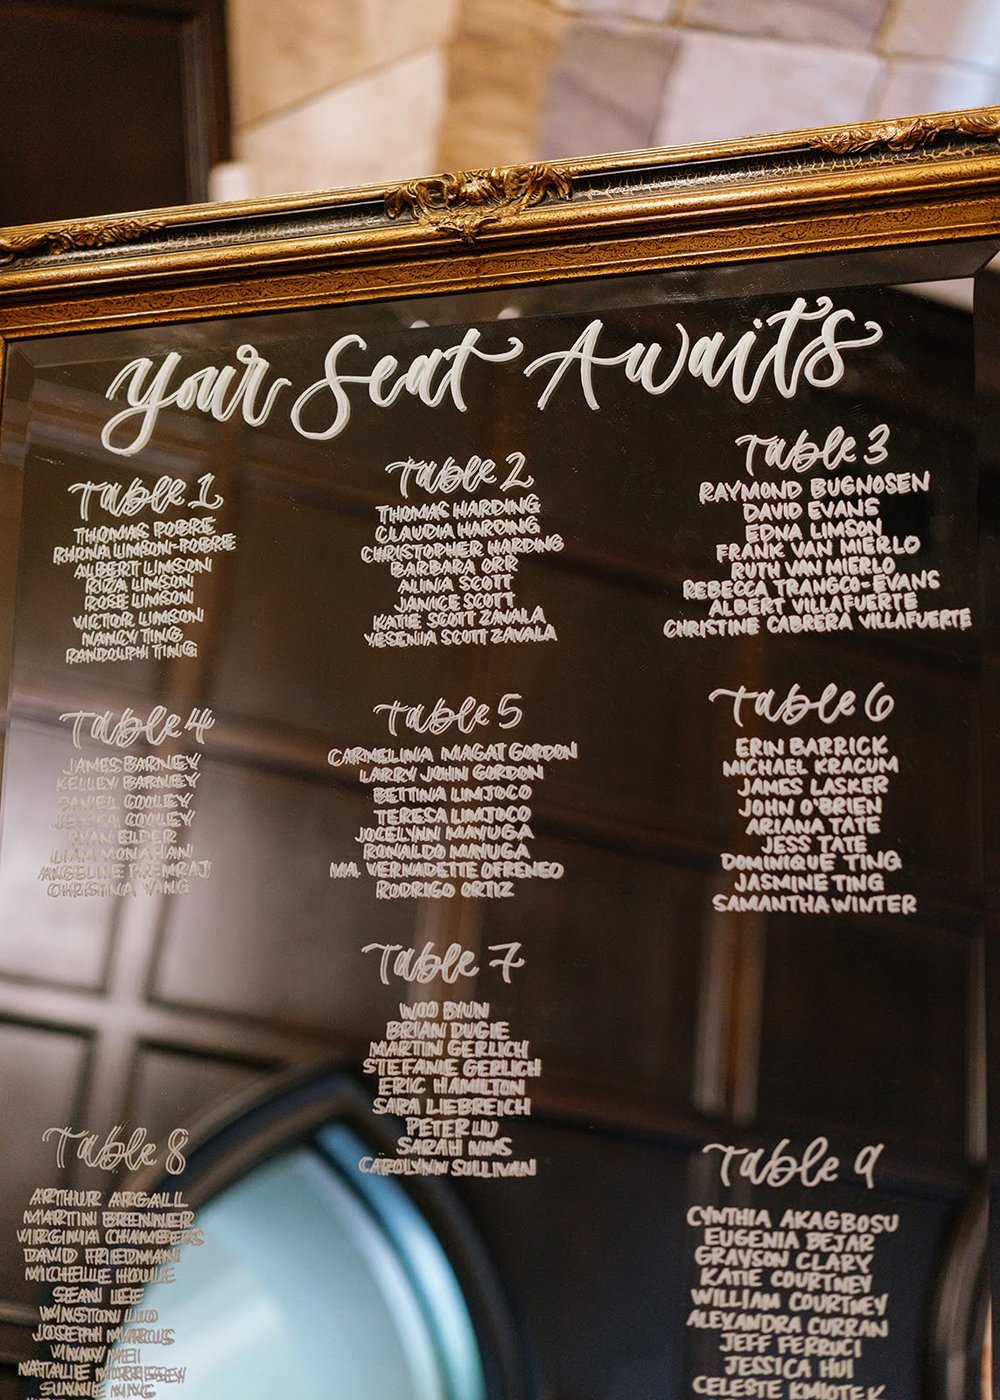 Your Seat Awaits
Table 1
THOMAS POBRE
RHONA LIMSON-POBRE
ALBERT LIMSON
RIZA LIMSON
ROSE LIMSON
VICTOR LIMSON
NANCY TING
RANDOLPH TING
Table 2
THOMAS HARDING
CLAUDIA HARDING
CHRISTOPHER HARDING
BARBARA ORR
ALINA SCOTT
JANICE SCOTT
KATIE SCOTT ZAVALA
YESENIA SCOTT ZAVALA
Table 3
RAYMOND BUGNOSEN
DAVID EVANS
EDNA LIMSON
FRANK VAN MIERLO
RUTH VAN MIERLO
REBECCA TRANGCO-EVANS
ALBERT VILLAFUERTE
CHRISTINE CABRERA VILLAFUERTE
Table 4
JAMES BARNEY
KELLEY BARNEY
DANIEL COOLEY
JESSICA COOLEY
RYAN ELDER
LIAM MONAHAN
ANGELINE PREMRAJ
CHRISTINA YANG
Table 5
CARMELINA MAGAT GORDON
LARRY JOHN GORDON
BETTINA LIMJOCO
TERESA LIMJOCO
JOCELYNN MAYUGA
RONALDO MAYUGA
MA. VERNADETTE OFRENEO
RODRIGO ORTIZ
Table 6
ERIN BARRICK
MICHAEL KRACUM
JAMES LASKER
JOHN O'BRIEN
ARIANA TATE
JESS TATE
DOMINIQUE TING
JASMINE TING
SAMANTHA WINTER
Table 7
WOO BYUN
BRIAN DUGIE
MARTIN GERLICH
STEFANIE GERLICH
ERIC HAMILTON
SARA LIEBREICH
PETER LIU
SARAH NIMS
CAROLYNN SULLIVAN
Table 8
ARTHUR ARGALL
MARTIN BRENNER
VIRGINIA CHAMBERS
DAVID FRIEDMAN
MICHELLE HOULE
SEAN LEE
WINSTON LUO
JOSEPH MARCUS
VINNY MEI
NATALIE MORRISSEY
SUNNIE NING
Table 9
CYNTHIA AKAGBOSU
EUGENIA BEJAR
GRAYSON CLARY
KATIE COURTNEY
WILLIAM COURTNEY
ALEXANDRA CURRAN
JEFF FERRUCI
JESSICA HUI
CELESTE KMIOTEK